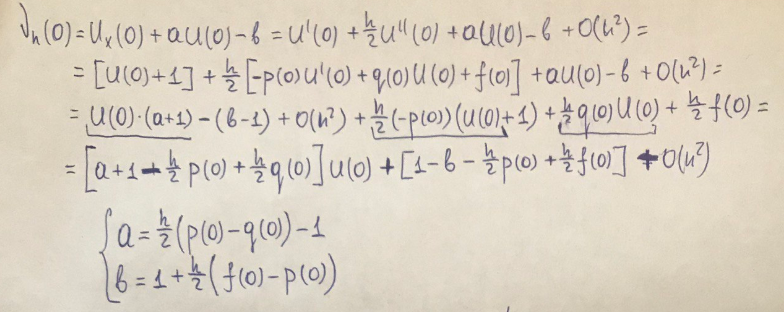 𝜈ₕ(0) = Uₓ(0) + aU(0) - b = U'(0) + h/2 U''(0) + aU(0) - b + O(h²) =
= [U(0)+1] + h/2 [-p(0)U'(0) + q(0)U(0) + f(0)] + aU(0) - b + O(h²) =
= U(0)·(a+1) - (b-1) + O(h²) + h/2 (-p(0))(U(0)+1) + h/2 q(0)U(0) + h/2 f(0) =
= [a+1 - h/2 p(0) + h/2 q(0)] U(0) + [1 - b - h/2 p(0) + h/2 f(0)] + O(h²)
{ a = h/2 (p(0) - q(0)) - 1
b = 1 + h/2 (f(0) - p(0))